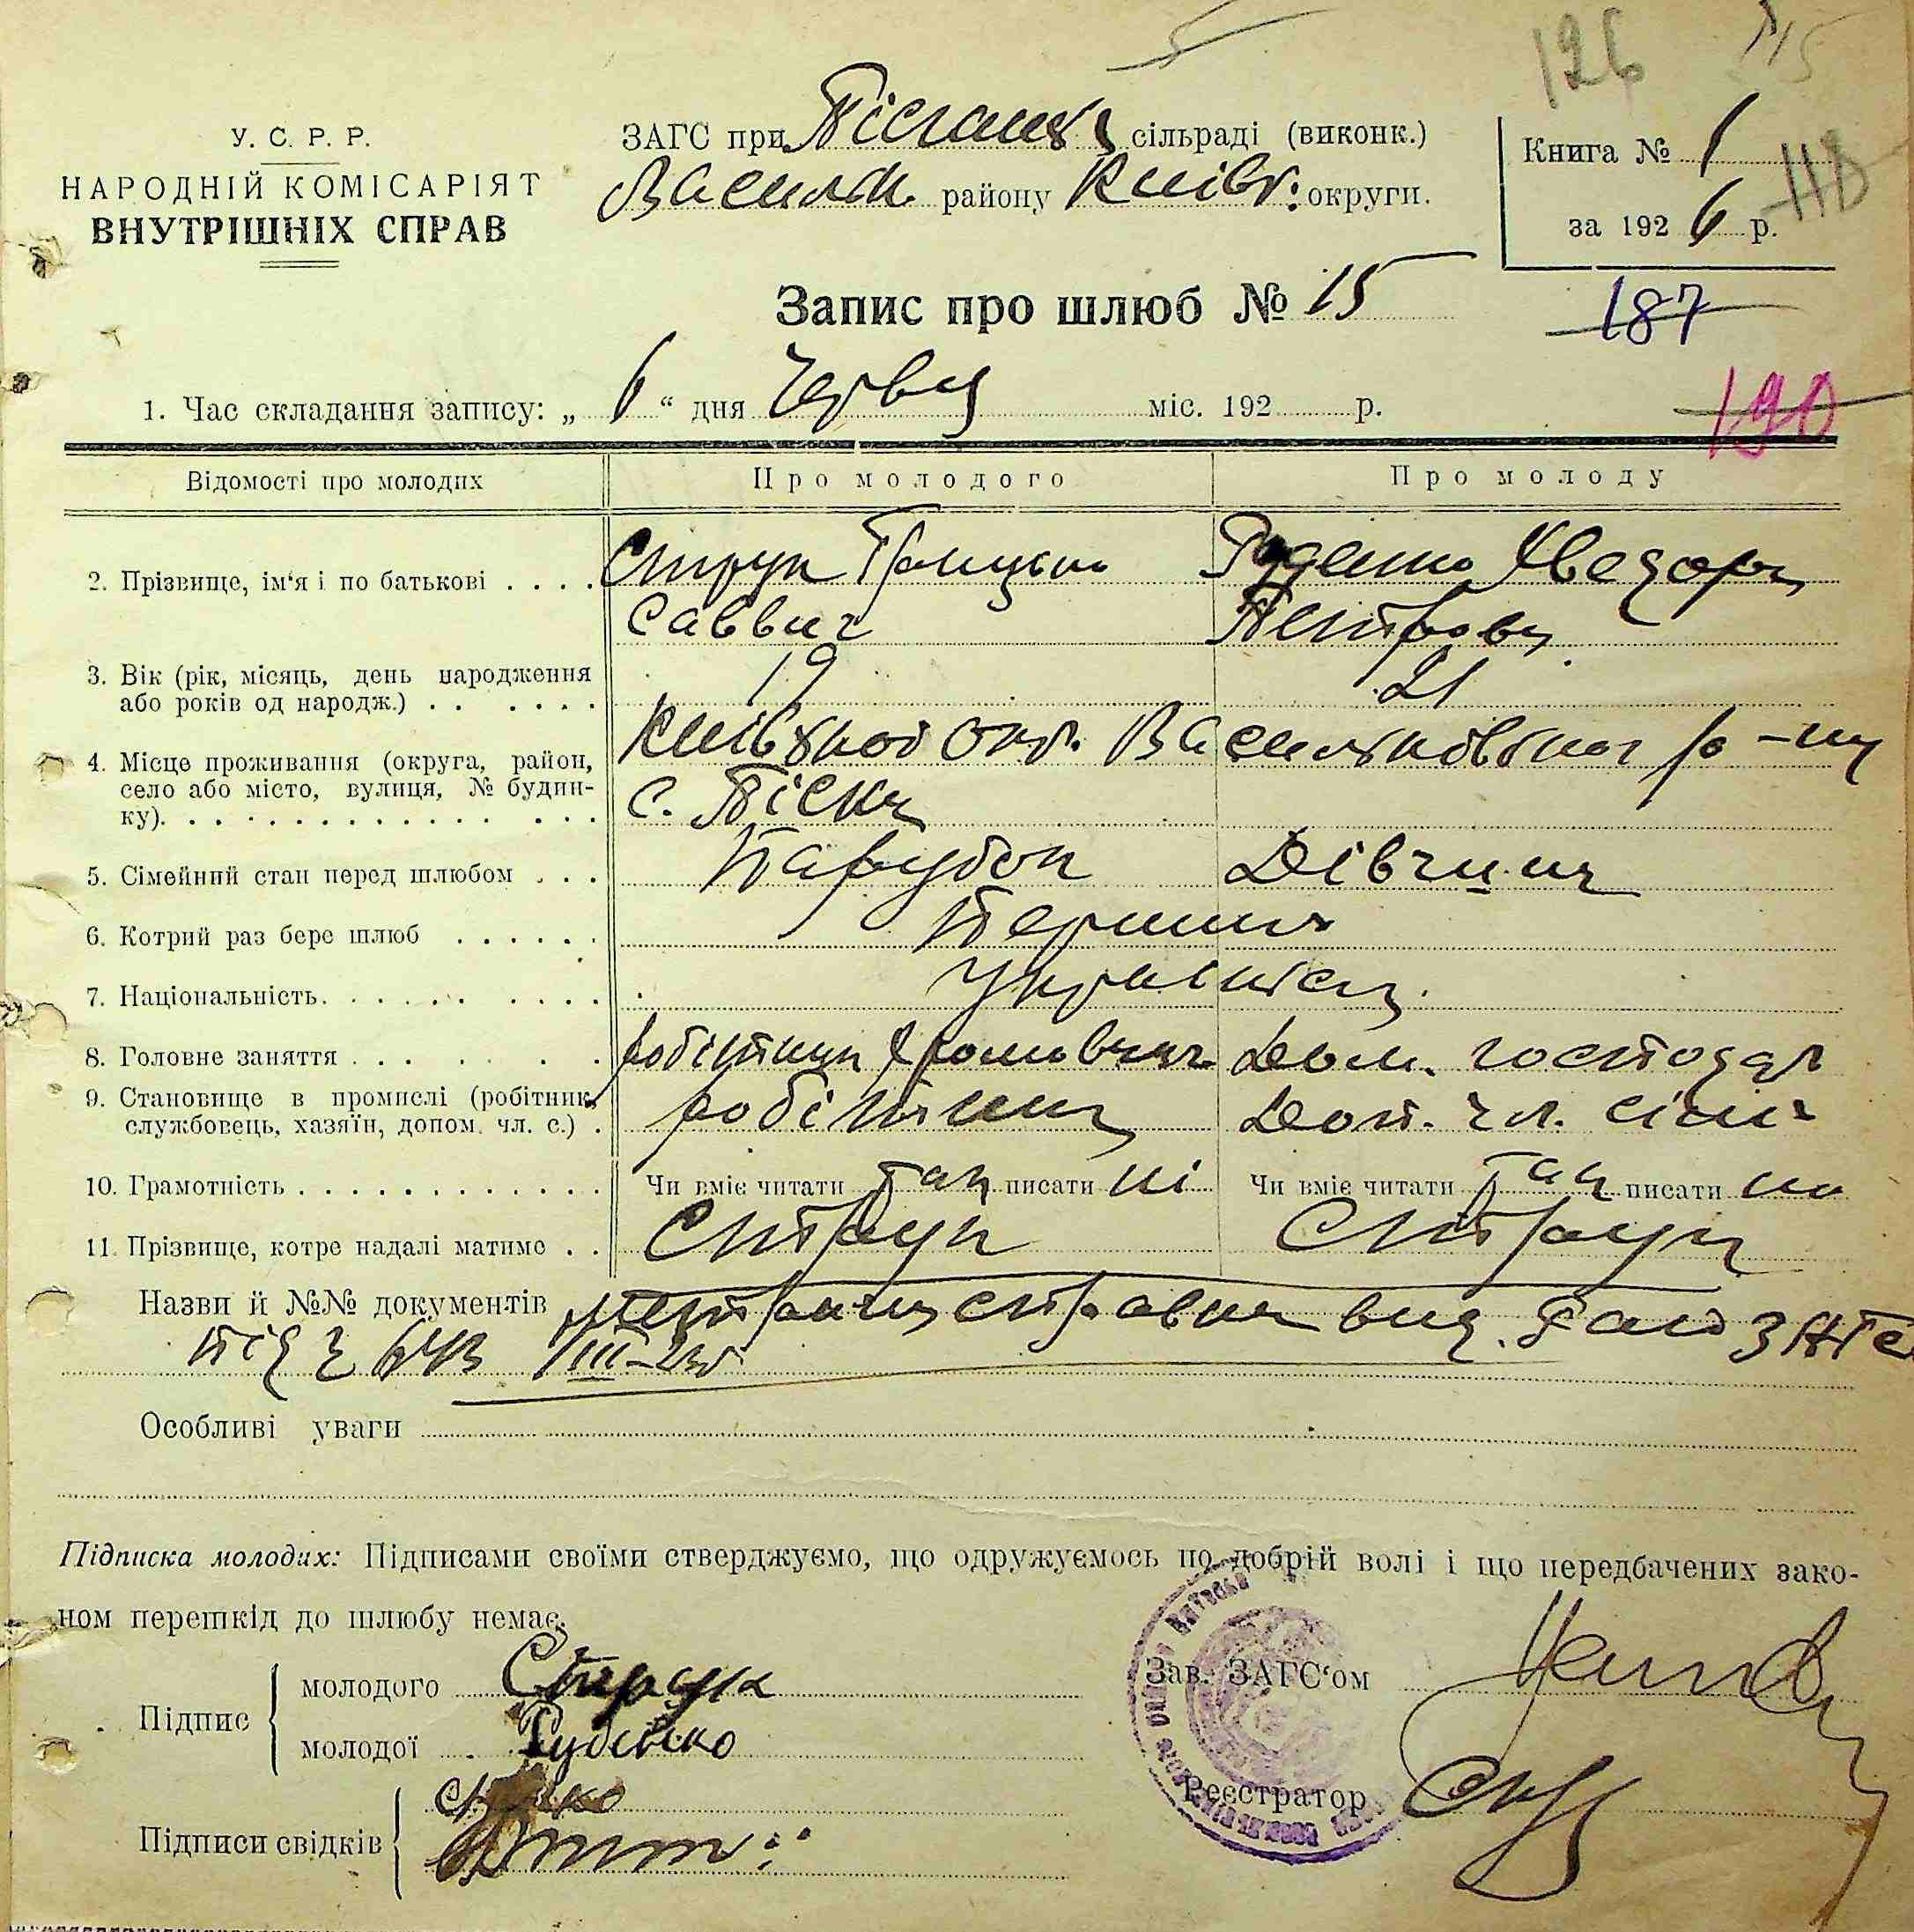 126
У. С. Р. Р.
НАРОДНІЙ КОМІСАРІЯТ
ВНУТРІШНІХ СПРАВ
ЗАГС при сільраді (виконк.)
Васильк. району Київс. округи.
Книга № 1
за 1926 р.
118
Запис про шлюб № 15
187
1. Час складання запису: „ 6 “ дня Червця міс. 192 р.
190
Відомості про молодих
Про молодого
Про молоду
2. Прізвище, ім‘я і по батькові . . . .
Струк Грицько
Саввич
Руденко Хведора
Петровн
3. Вік (рік, місяць, день народження
або років од народж.) . . . . . .
19
21
4. Місце проживання (округа, район,
село або місто, вулиця, № будин-
ку). . . . . . . . . . . . . . . .
Київської окр. Васильківського р-ну
с. Піски
5. Сімейний стан перед шлюбом . . .
Парубок
Дівчина
6. Котрий раз бере шлюб . . . . . .
Перший
7. Національність. . . . . . . . . .
Українці
8. Головне заняття . . . . . . .
робітник
Дом. господар
9. Становище в промислі (робітник,
службовець, хазяїн, допом. чл. с.) .
робітник
Доп. чл. сімї
10. Грамотність . . . . . . . . . . . .
Чи вміє читати так писати ні
Чи вміє читати так писати ні
11. Прізвище, котре надалі матиме . .
Струк
Струк
Назви й №№ документів метрична справка вид.
під ч 643
Особливі уваги
Підписка молодих: Підписами своїми стверджуємо, що одружуємось по добрій волі і що передбачених зако-
ном перешкід до шлюбу немає.
Підпис
молодого Струк
молодої Руденко
Підписи свідків
Зав. ЗАГС‘ом
Реєстратор